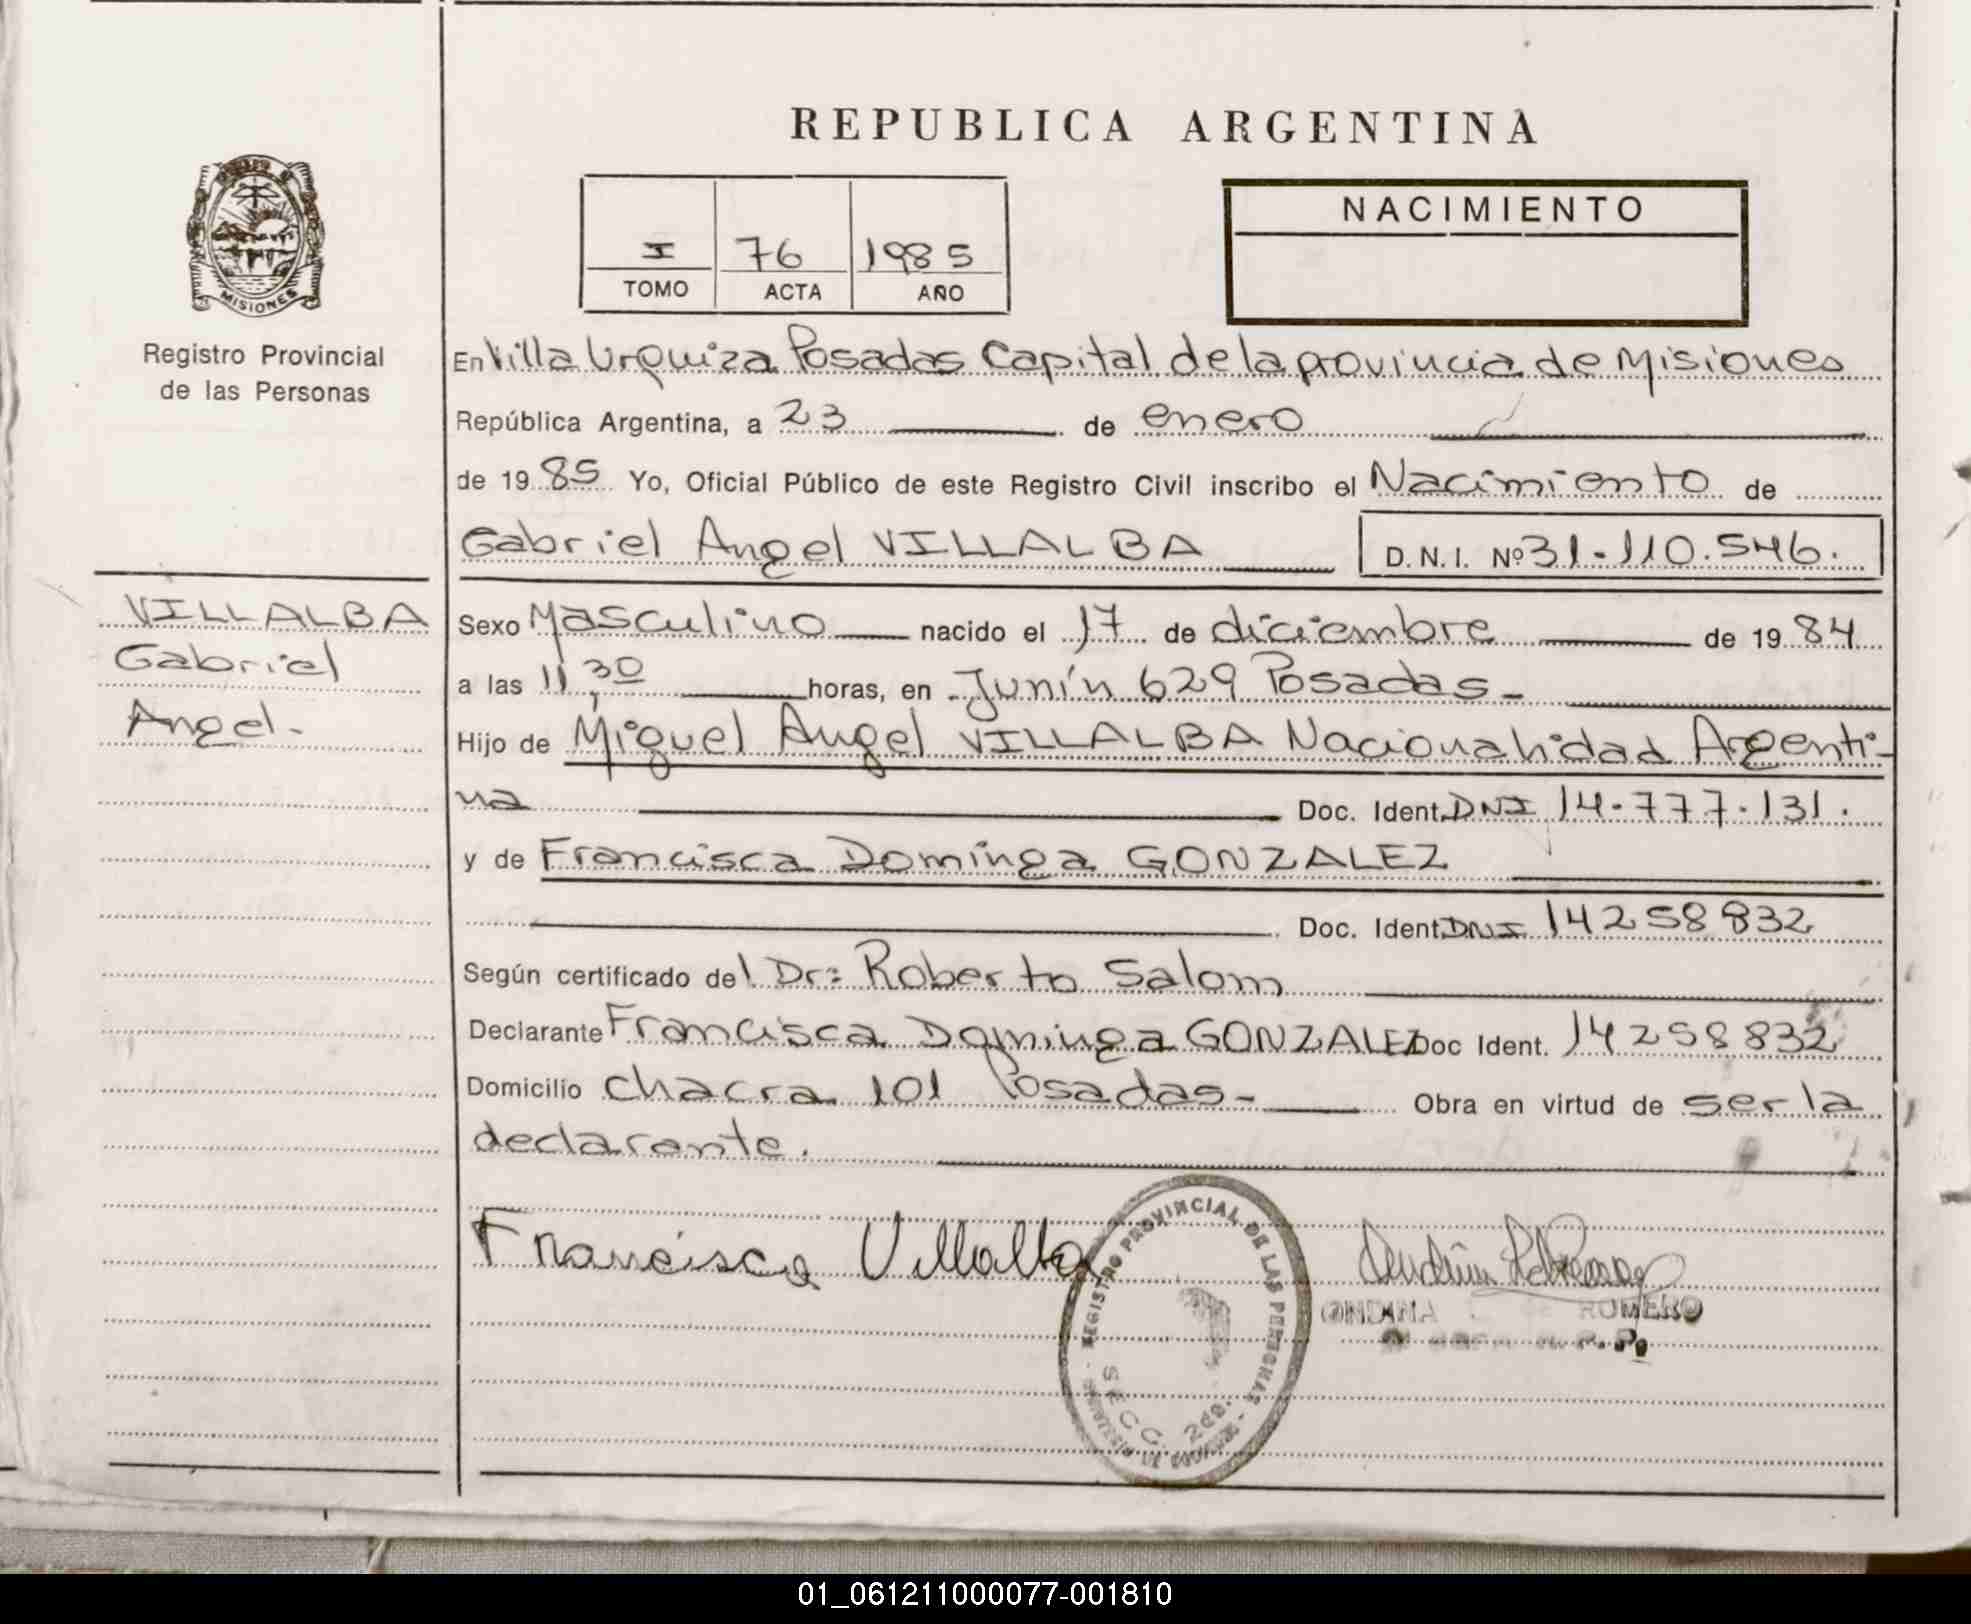 REPUBLICA ARGENTINA
MISIONES
Registro Provincial
de las Personas
I 76 1985
TOMO ACTA AÑO
NACIMIENTO
En Villa Urquiza Posadas Capital de la provincia de Misiones
República Argentina, a 23 de enero
de 19 85 Yo, Oficial Público de este Registro Civil inscribo el Nacimiento de
Gabriel Angel VILLALBA D.N.I. Nº 31.110.546.
VILLALBA
Gabriel
Angel.-
Sexo Masculino nacido el 17 de diciembre de 19 84
a las 11,30 horas, en Junín 629 Posadas-
Hijo de Miguel Angel VILLALBA Nacionalidad Argenti-
na Doc. Ident. DNI 14.777.131.
y de Francisca Dominga GONZALEZ
Doc. Ident. DNI 14258832
Según certificado del Dr: Roberto Salom
Declarante Francisca Dominga GONZALEZ Doc Ident. 14258832
Domicilio Chacra 101 Posadas- Obra en virtud de ser la
declarante.
Francisca Villalba
REGISTRO PROVINCIAL DE LAS PERSONAS
SECC. 2da.
ROMERO
01_061211000077-001810